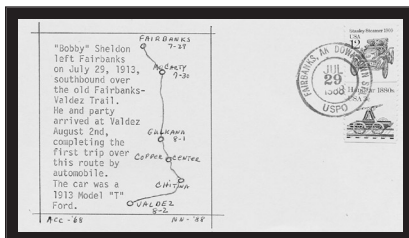 "Bobby" Sheldon
left Fairbanks
on July 29, 1913,
southbound over
the old Fairbanks-
Valdez Trail.
He and party
arrived at Valdez
August 2nd,
completing the
first trip over
this route by
automobile.
The car was a
1913 Model "T"
Ford.
FAIRBANKS
7-29
McCARTY
7-30
GULKANA
8-1
COPPER CENTER
CHITINA
VALDEZ
8-2
ACC-'68
NN-'88
FAIRBANKS, AK DOWNTOWN
JUL
29
1988
USPO
Stanley Steamer 1909
USA
12
Handcar 1880s
USA